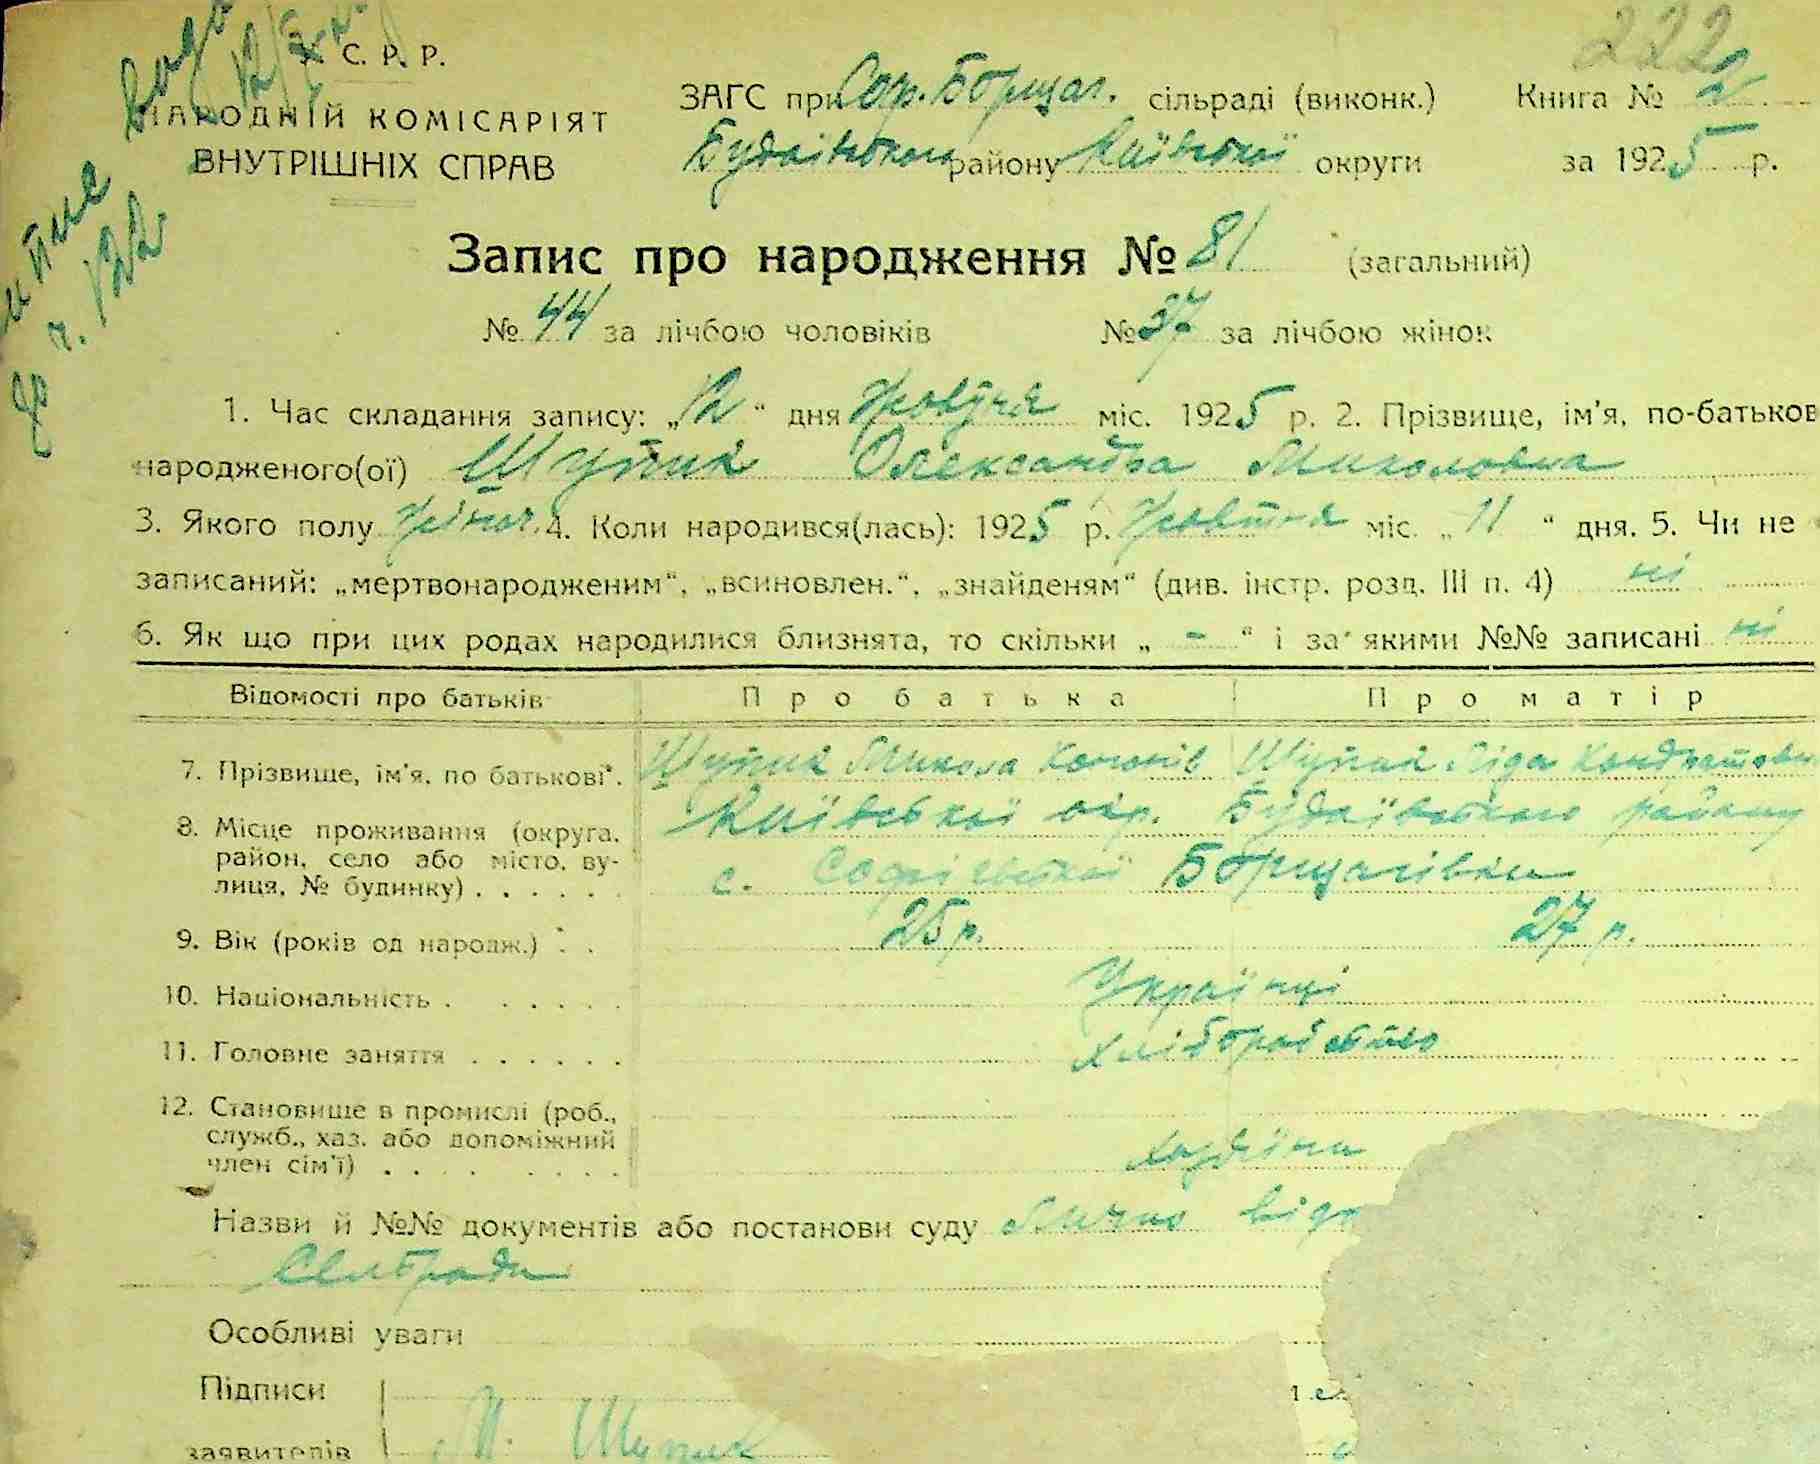 С. Р. Р.
222
НАРОДНІЙ КОМІСАРІЯТ
ВНУТРІШНІХ СПРАВ
ЗАГС при Соф. Борщаг. сільраді (виконк.) Книга № 2
Будаївського району Київської округи за 1925 р.
Запис про народження № 81 (загальний)
№ 44 за лічбою чоловіків № 37 за лічбою жінок
1. Час складання запису: „12" дня Жовтня міс. 1925 р. 2. Прізвище, ім'я, по-батьков
народженого(ої) Шупик Олександра Миколовна
3. Якого полу жіноч. 4. Коли народився(лась): 1925 р. Жовтня міс. „11" дня. 5. Чи не
записаний: „мертвонародженим", „всиновлен.", „знайденям" (див. інстр. розд. III п. 4) ні
6. Як що при цих родах народилися близнята, то скільки „ - " і за якими №№ записані ні
Відомості про батьків Про батька Про матір
7. Прізвище, ім'я, по батькові. Шупик Микола Кононів Шупик Ліда Кондратовн
8. Місце проживання (округа, Київської окр. Будаївського району
район, село або місто, ву-
лиця, № будинку) . . . . . . с. Софіївської Борщагівки
9. Вік (років од народж.) . . 25 р. 27 р.
10. Національність . . . . . . Українці
11. Головне заняття . . . . . . хліборобство
12. Становище в промислі (роб.,
служб., хаз. або допоміжний
член сім'ї) . . . . . . . хазяїни
Назви й №№ документів або постанови суду Лично відо
Сельради
Особливі уваги
Підписи
заявителів М. Шупик